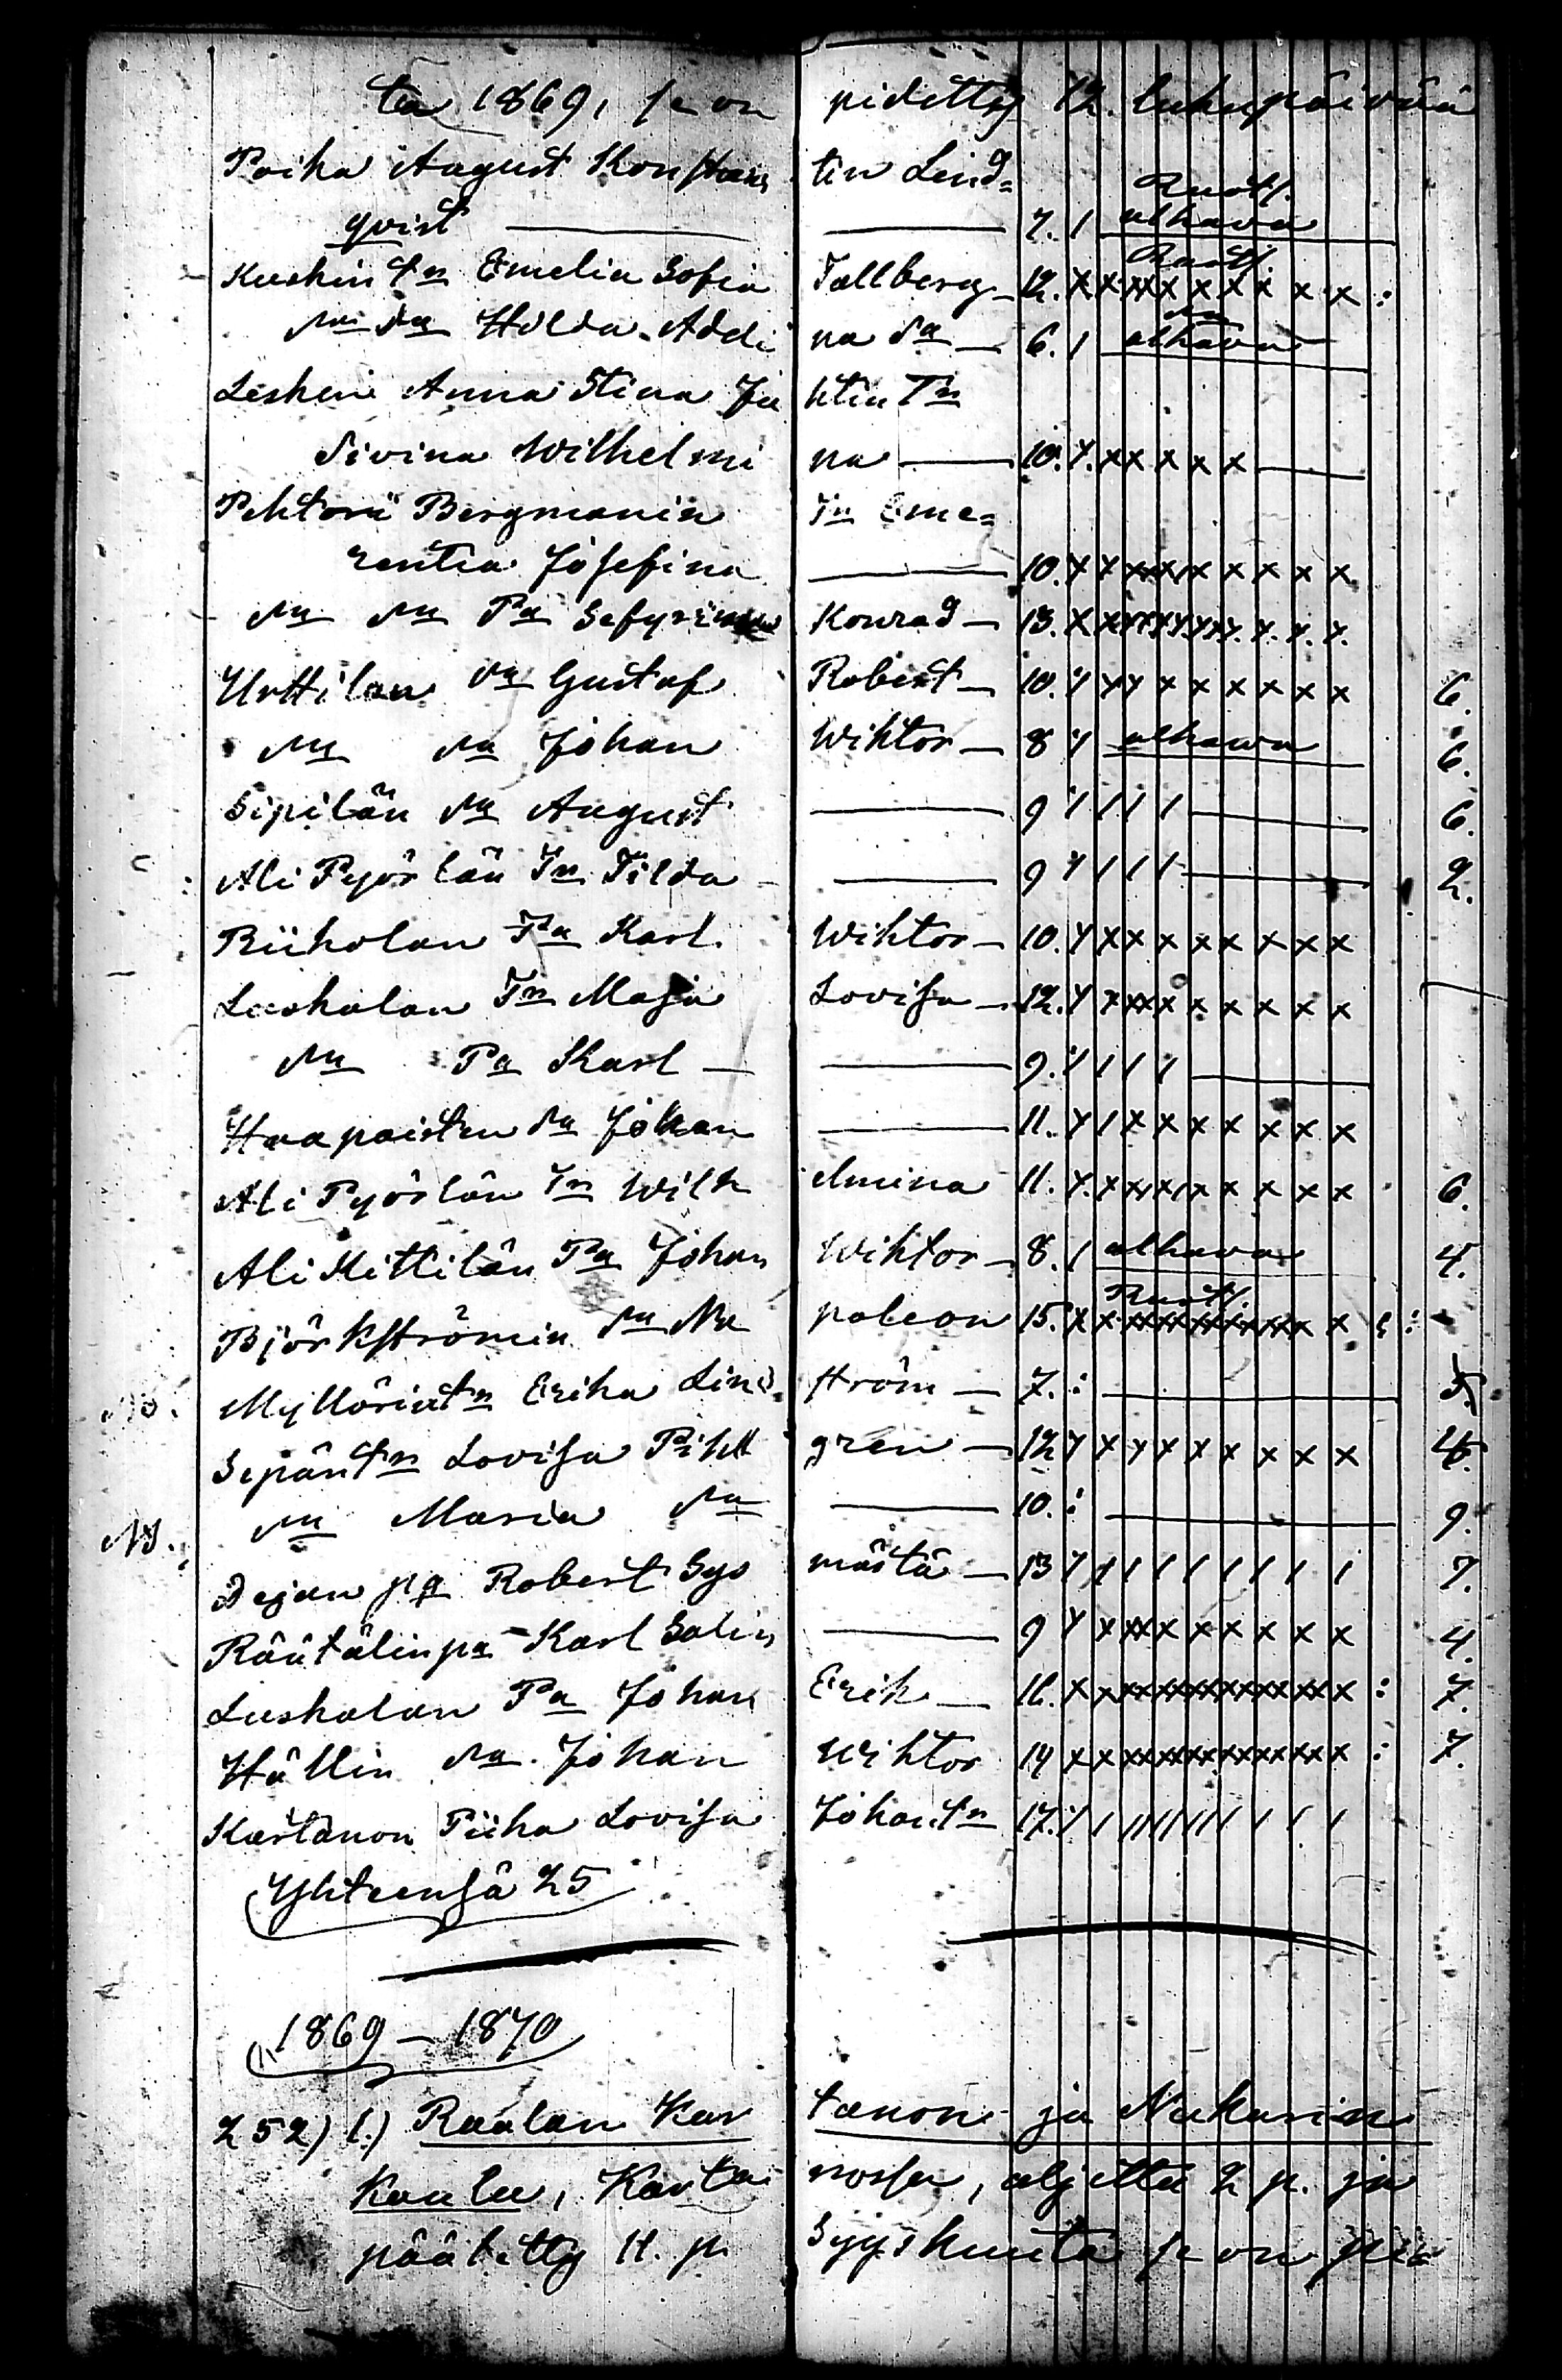 ta 1869, se on pidetty 12. lukupäivää
Poika August Konstan tin Lind=
Ruots.
qvist — 7. / alkava
Ruots.
Kuskin tr Emelia Sofia Tallberg — 12. x x x x x x x x x x :
na da Hilda Addi na da — 6. / alkava
Lesken Anna Stina Ju htin Tr
Sivina Wilhelmi na — 10. x. x x x x x —
Pehtorii Bergmanin Tr Eme=
rentia Josefina — 10. x x x x x x x x x x
Pa Sefyrinus Konrad — 13. x x x x x x x x x x. x. x. x.
Urttilan Gustaf Robert — 10. x x x x x x x x x 6.
Johan Wiktor — 8 / alkava 6.
Sipilän August — 9 / / / / — 6.
Ali Pyörlän Tr Tilda — 9 / / / / — 2.
Riiholan Pa Karl Wiktor — 10. x x x x x x x x x
Luskalan Tr Maja Lovisa — 12. x x x x x x x x x x
Pa Karl — 9. / / / / —
Haapoisten Johan — 11. x / x x x x x x x
Ali Pyörlän Tr Wilh elmina 11. x. x x x x x x x x 6.
Ali Kittilän Pa Johan Wiktor — 8. / alkava 4.
Ruots.
Björkströmin Na poleon 15. x x x x x x x x x x x x :
Myllärin tr Erika Lind ström — 7. : — 5.
Sepän tr Lovisa Pihl gren — 12 x x x x x x x x x 4.
Maria — 10. : — 9.
Pa Robert Sys mästä — 13 / / / / / / / / / 7.
Räätälin pa Karl Salin — 9 x x x x x x x x x 4.
Luskalan Pa Johan Erik — 16. x x x x x x x x x x x x x : 7.
Hällin Johan Wiktor 14 x x x x x x x x x x x x : 7.
Kartanon Piika Lovisa Johan tr 17. / / / / / / / / / /
Yhteensä 25
1869 — 1870
252) 1.) Raalan Kar tanon ja Nukarin
Koulu, Karta nossa, aljettu 2 p. ja
päätetty 11. p. Syyskuuta se on pi